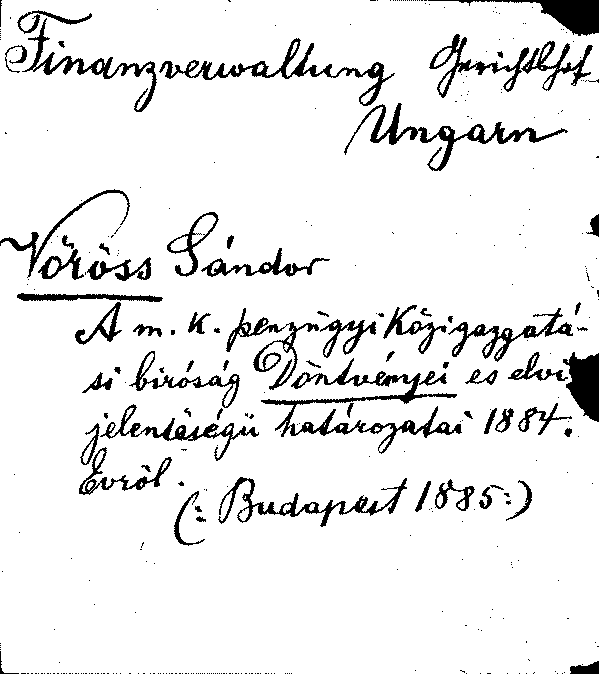 Finanzverwaltung Gerichtshof
Ungarn
Vöröss Sándor
A m. k. penzügyi Közigazgatá-
si biróság Döntvényei es elvi
jelentöségü határozatai 1884.
Évröl.
(: Budapest 1885 :)